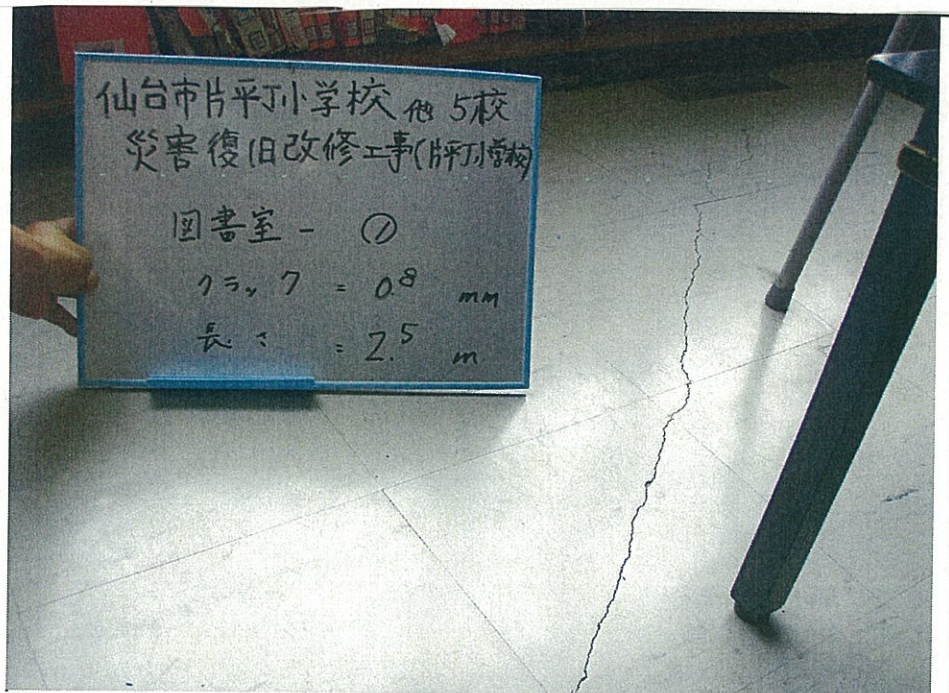 仙台市片平丁小学校 他5校
災害復旧改修工事(片平丁小学校)
図書室 - ①
クラック = 0.8 mm
長さ = 2.5 m